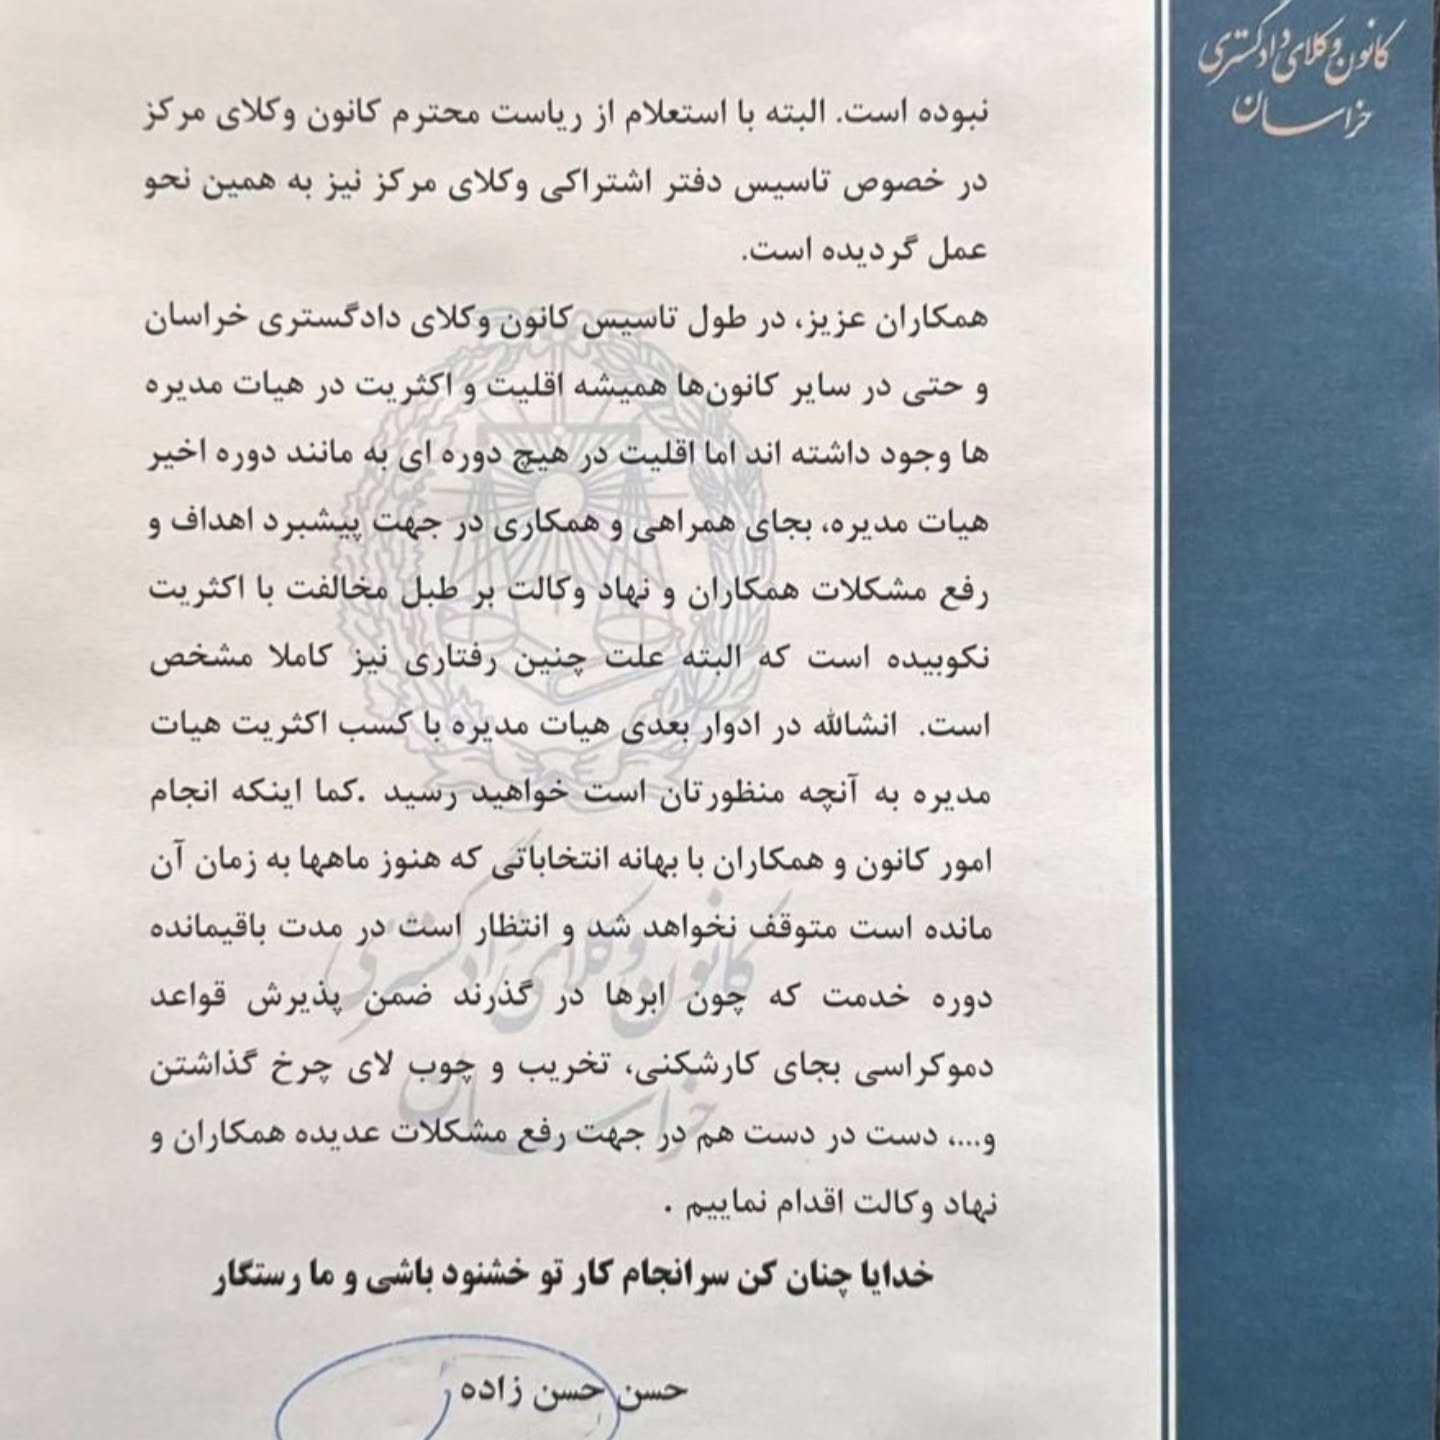 کانون وکلای دادگستری
خراسان
نبوده است. البته با استعلام از ریاست محترم کانون وکلای مرکز
در خصوص تاسیس دفتر اشتراکی وکلای مرکز نیز به همین نحو
عمل گردیده است.
همکاران عزیز، در طول تاسیس کانون وکلای دادگستری خراسان
و حتی در سایر کانون‌ها همیشه اقلیت و اکثریت در هیات مدیره
ها وجود داشته اند اما اقلیت در هیچ دوره ای به مانند دوره اخیر
هیات مدیره، بجای همراهی و همکاری در جهت پیشبرد اهداف و
رفع مشکلات همکاران و نهاد وکالت بر طبل مخالفت با اکثریت
نکوبیده است که البته علت چنین رفتاری نیز کاملا مشخص
است. انشالله در ادوار بعدی هیات مدیره با کسب اکثریت هیات
مدیره به آنچه منظورتان است خواهید رسید .کما اینکه انجام
امور کانون و همکاران با بهانه انتخاباتی که هنوز ماهها به زمان آن
مانده است متوقف نخواهد شد و انتظار است در مدت باقیمانده
دوره خدمت که چون ابرها در گذرند ضمن پذیرش قواعد
دموکراسی بجای کارشکنی، تخریب و چوب لای چرخ گذاشتن
و...، دست در دست هم در جهت رفع مشکلات عدیده همکاران و
نهاد وکالت اقدام نماییم .
خدایا چنان کن سرانجام کار تو خشنود باشی و ما رستگار
حسن حسن زاده
کانون وکلای دادگستری
خراسان